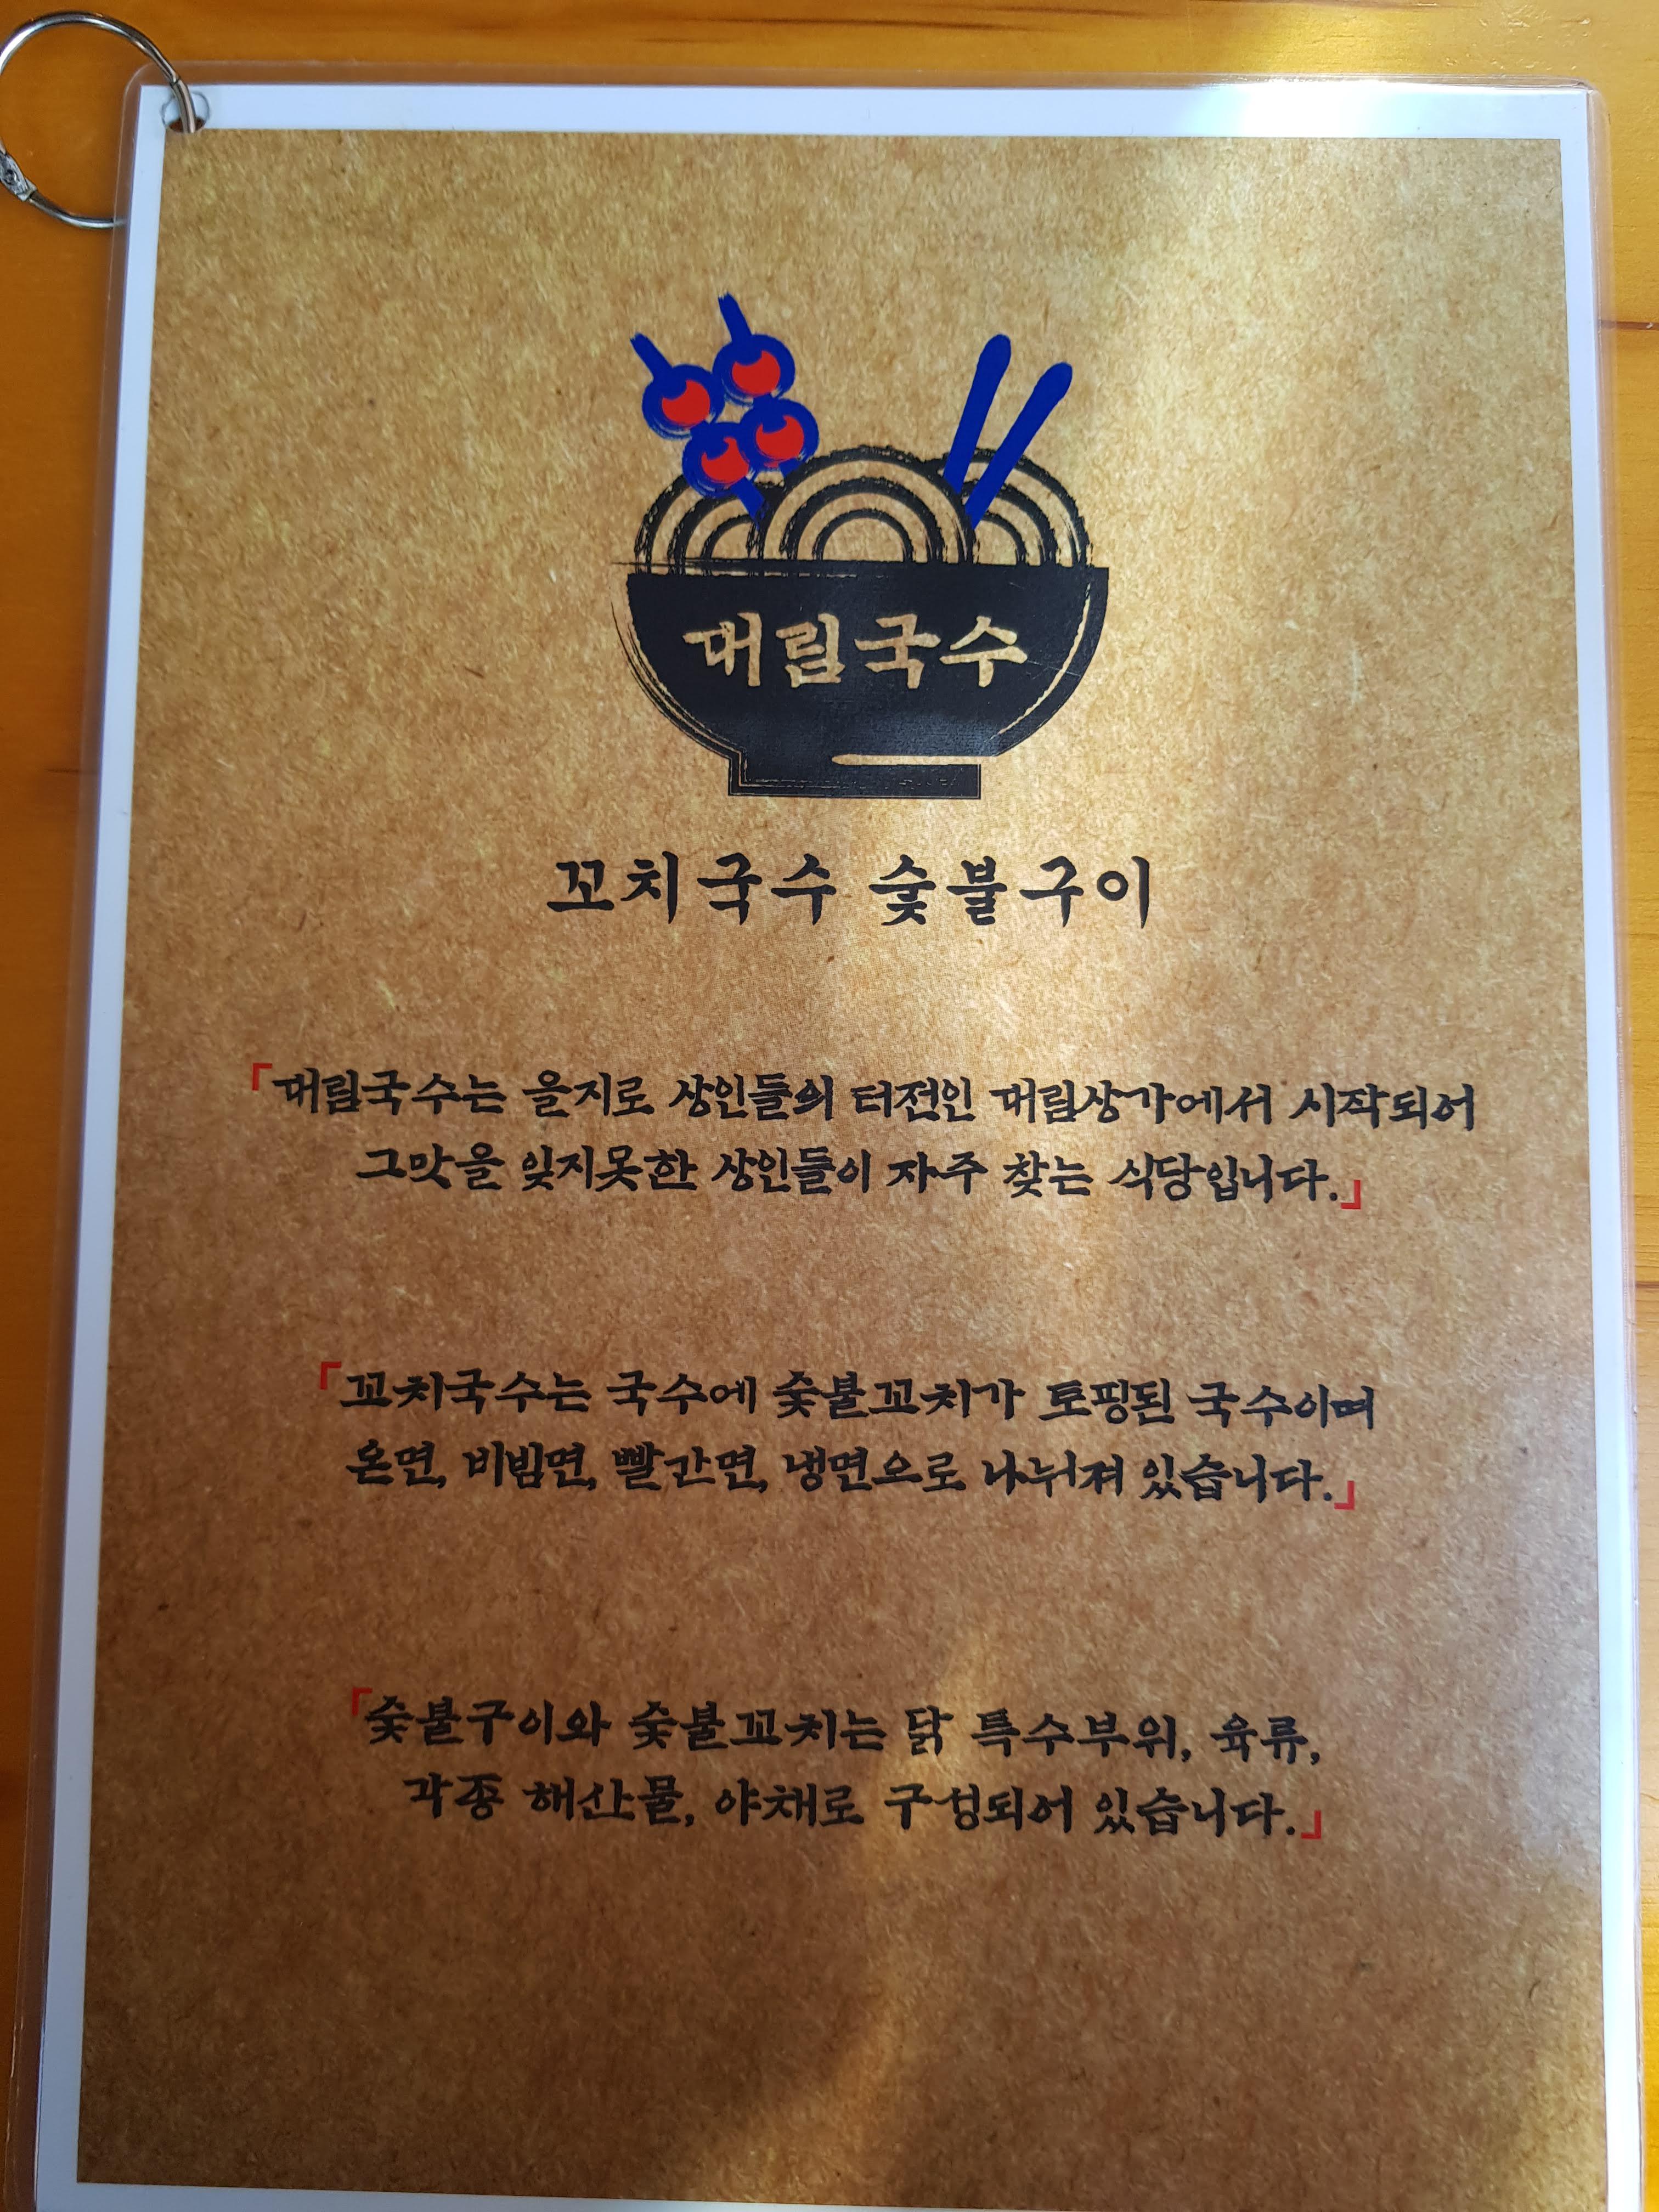 대림국수
꼬치국수 숯불구이
「대림국수는 을지로 상인들의 터전인 대림상가에서 시작되어
그맛을 잊지못한 상인들이 자주 찾는 식당입니다.」
「꼬치국수는 국수에 숯불꼬치가 토핑된 국수이며
온면, 비빔면, 빨간면, 냉면으로 나눠져 있습니다.」
「숯불구이와 숯불꼬치는 닭 특수부위, 육류,
각종 해산물, 야채로 구성되어 있습니다.」